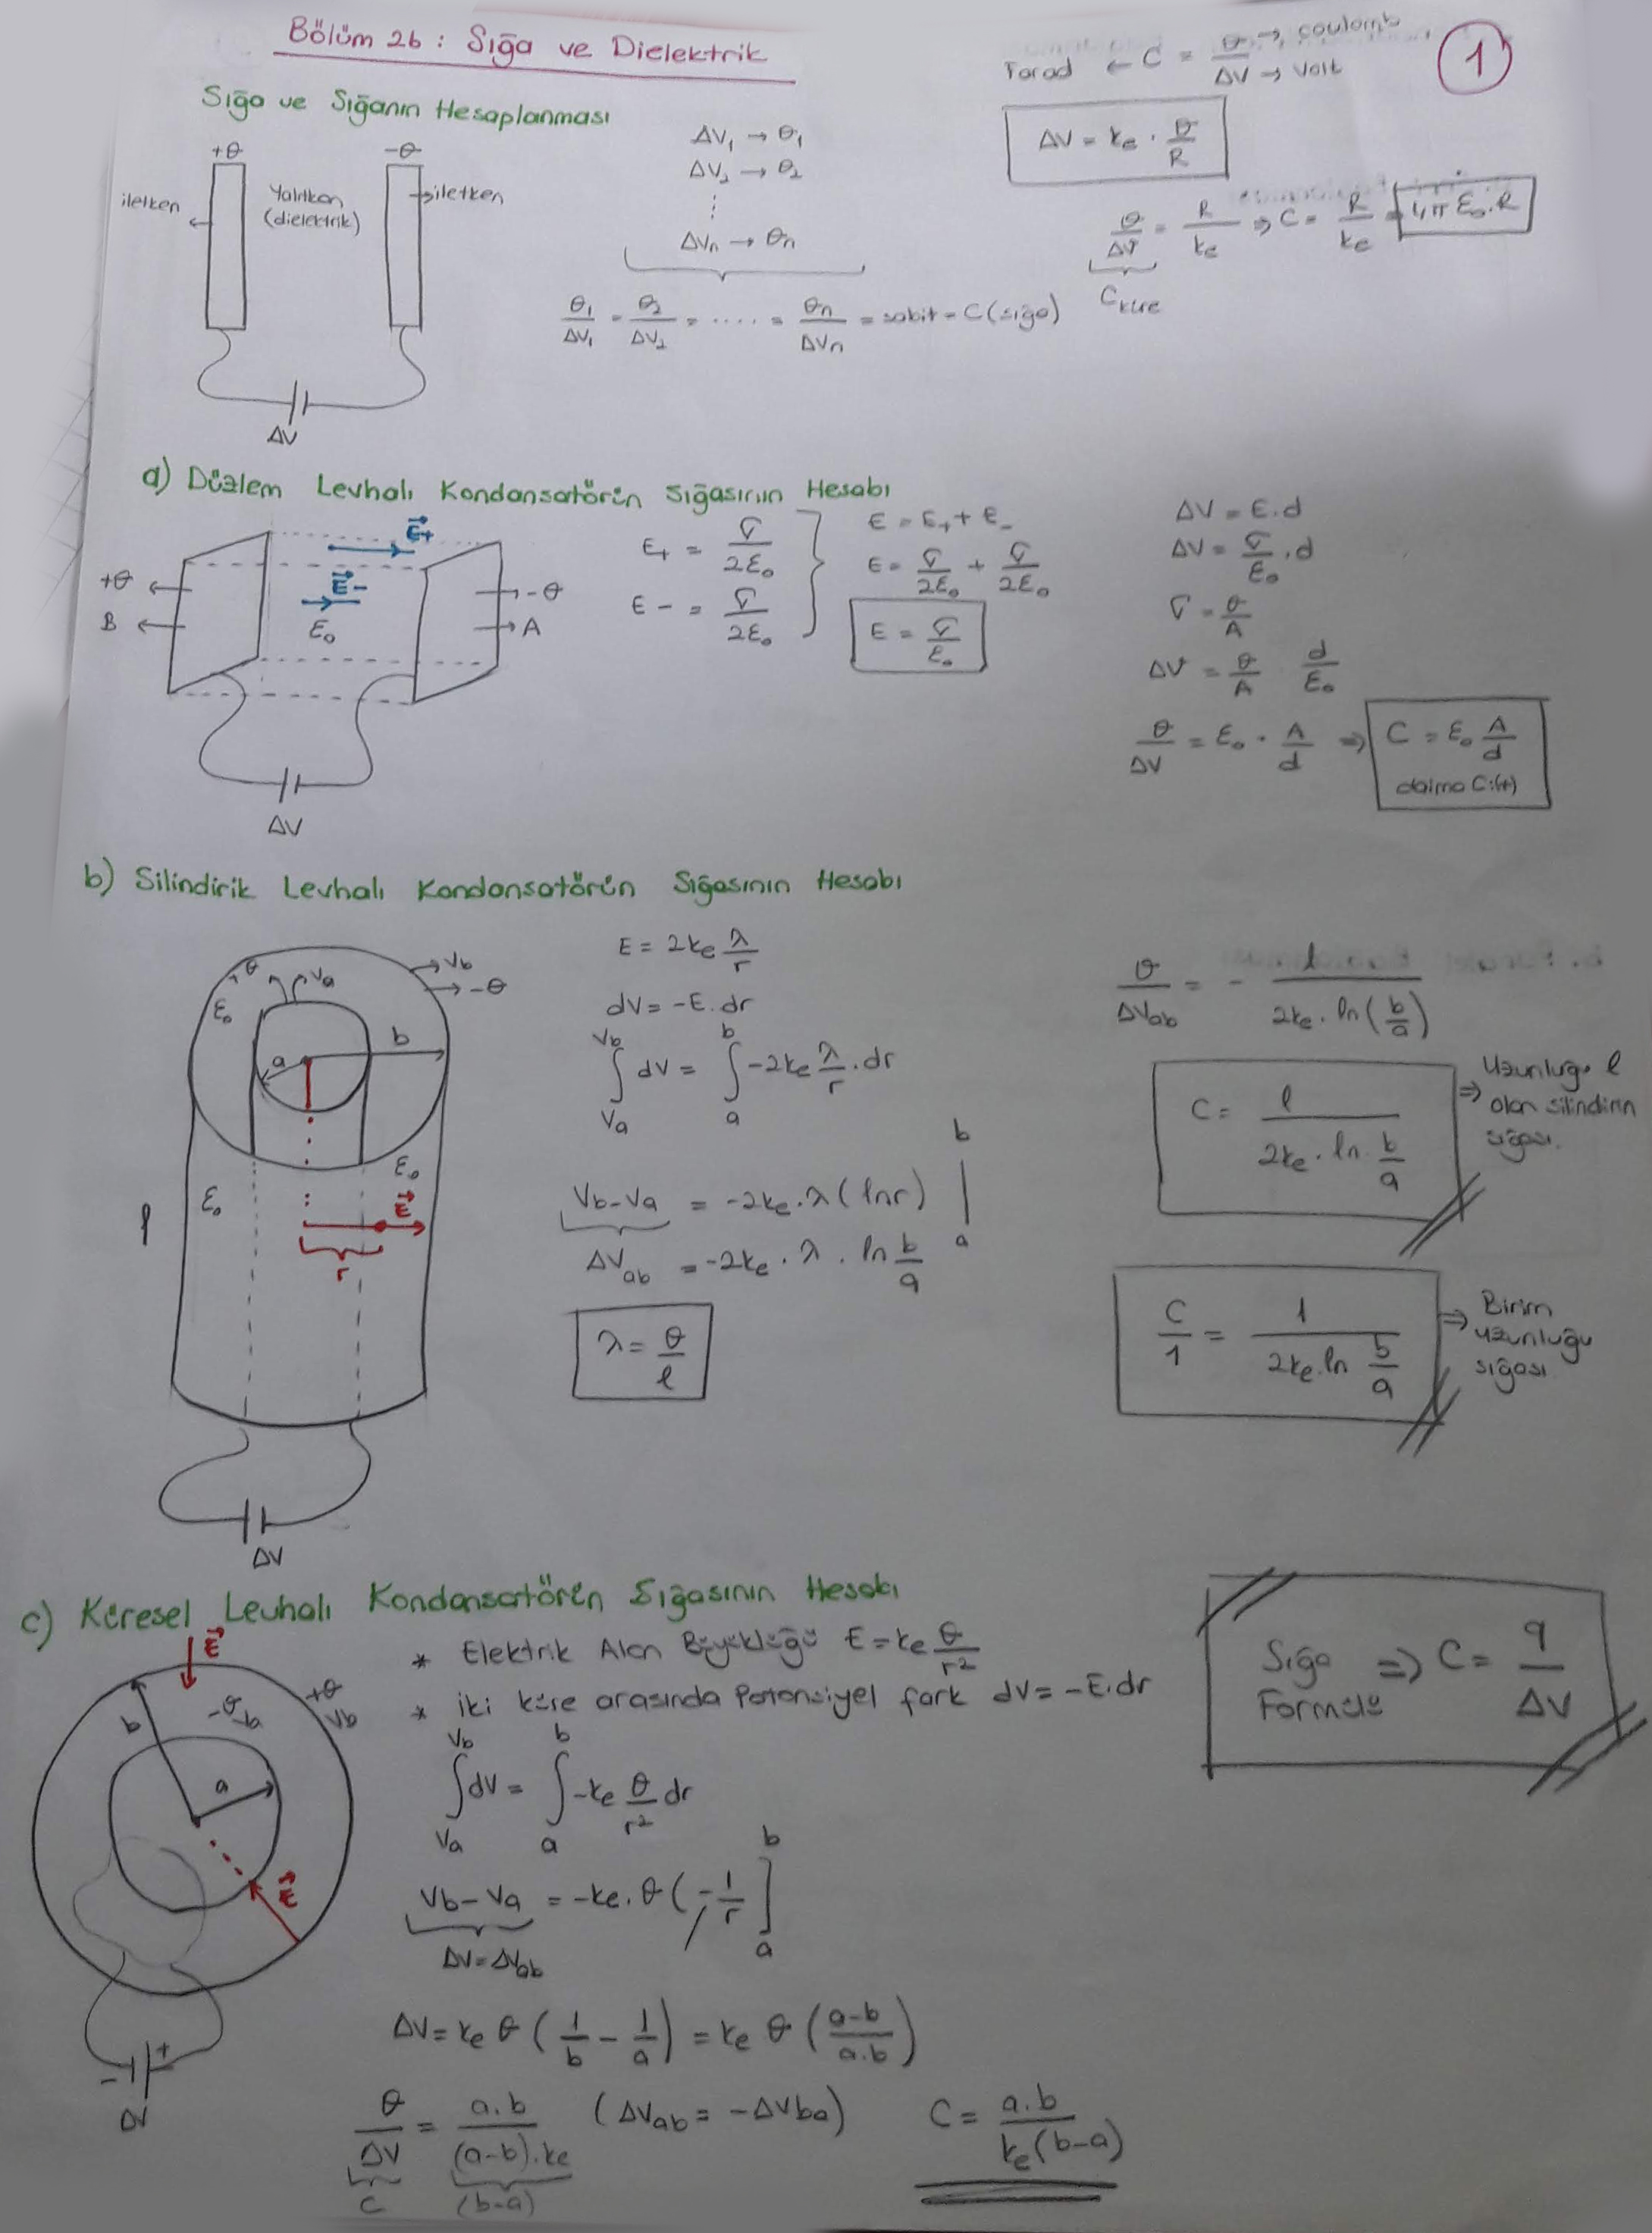 Bölüm 26 : Sığa ve Dielektrik
1
Farad ← C = θ → coulomb / ΔV → Volt
Sığa ve Sığanın Hesaplanması
ΔV = ke . θ/R
θ/ΔV = R/ke ⇒ C = R/ke = 4π Ɛ₀.R
Cküre
+θ
-θ
iletken
Yalıtkan
(dielektrik)
iletken
ΔV
ΔV₁ → θ₁
ΔV₂ → θ₂
⋮
ΔVn → θn
θ₁/ΔV₁ = θ₂/ΔV₂ = ..... = θn/ΔVn = sabit = C (sığa)
a) Düzlem Levhalı Kondansatörün Sığasının Hesabı
+θ
B
E⃗+
E⃗-
Ɛ₀
-θ
A
ΔV
E+ = σ/2Ɛ₀
E- = σ/2Ɛ₀
E = E+ + E-
E = σ/2Ɛ₀ + σ/2Ɛ₀
E = σ/Ɛ₀
ΔV = E.d
ΔV = σ/Ɛ₀ .d
σ = θ/A
ΔV = θ/A d/Ɛ₀
θ/ΔV = Ɛ₀ . A/d ⇒ C = Ɛ₀ A/d
daima C:(+)
b) Silindirik Levhalı Kondansatörün Sığasının Hesabı
+θ
Va
Vb
-θ
Ɛ₀
a
b
Ɛ₀
Ɛ₀
l
E⃗
r
ΔV
E = 2ke λ/r
dV = -E.dr
∫_Va^Vb dV = ∫_a^b -2ke λ/r .dr
Vb-Va = -2ke.λ (lnr) |_a^b
ΔVab = -2ke . λ . ln b/a
λ = θ/l
θ/ΔVab = - l/2ke.ln(b/a)
C = l/2ke.ln b/a ⇒ Uzunluğu l
olan silindirin
sığası.
C/1 = 1/2ke.ln b/a ⇒ Birim
uzunluğu
sığası
c) Küresel Levhalı Kondansatörün Sığasının Hesabı
E⃗
b
-θ
+θ
Vb
a
E⃗
- +
ΔV
* Elektrik Alan Büyüklüğü E = ke θ/r²
* iki küre arasında Potansiyel fark dV = -E.dr
∫_Va^Vb dV = ∫_a^b -ke θ/r² dr
Vb-Va = -ke.θ (-1/r]_a^b
ΔV=ΔVab
ΔV = ke θ (1/b - 1/a) = ke θ (a-b/a.b)
θ/ΔV = a.b/(a-b).ke (ΔVab = -ΔVba) C = a.b/ke(b-a)
C (b-a)
Sığa
Formülü ⇒ C = q/ΔV